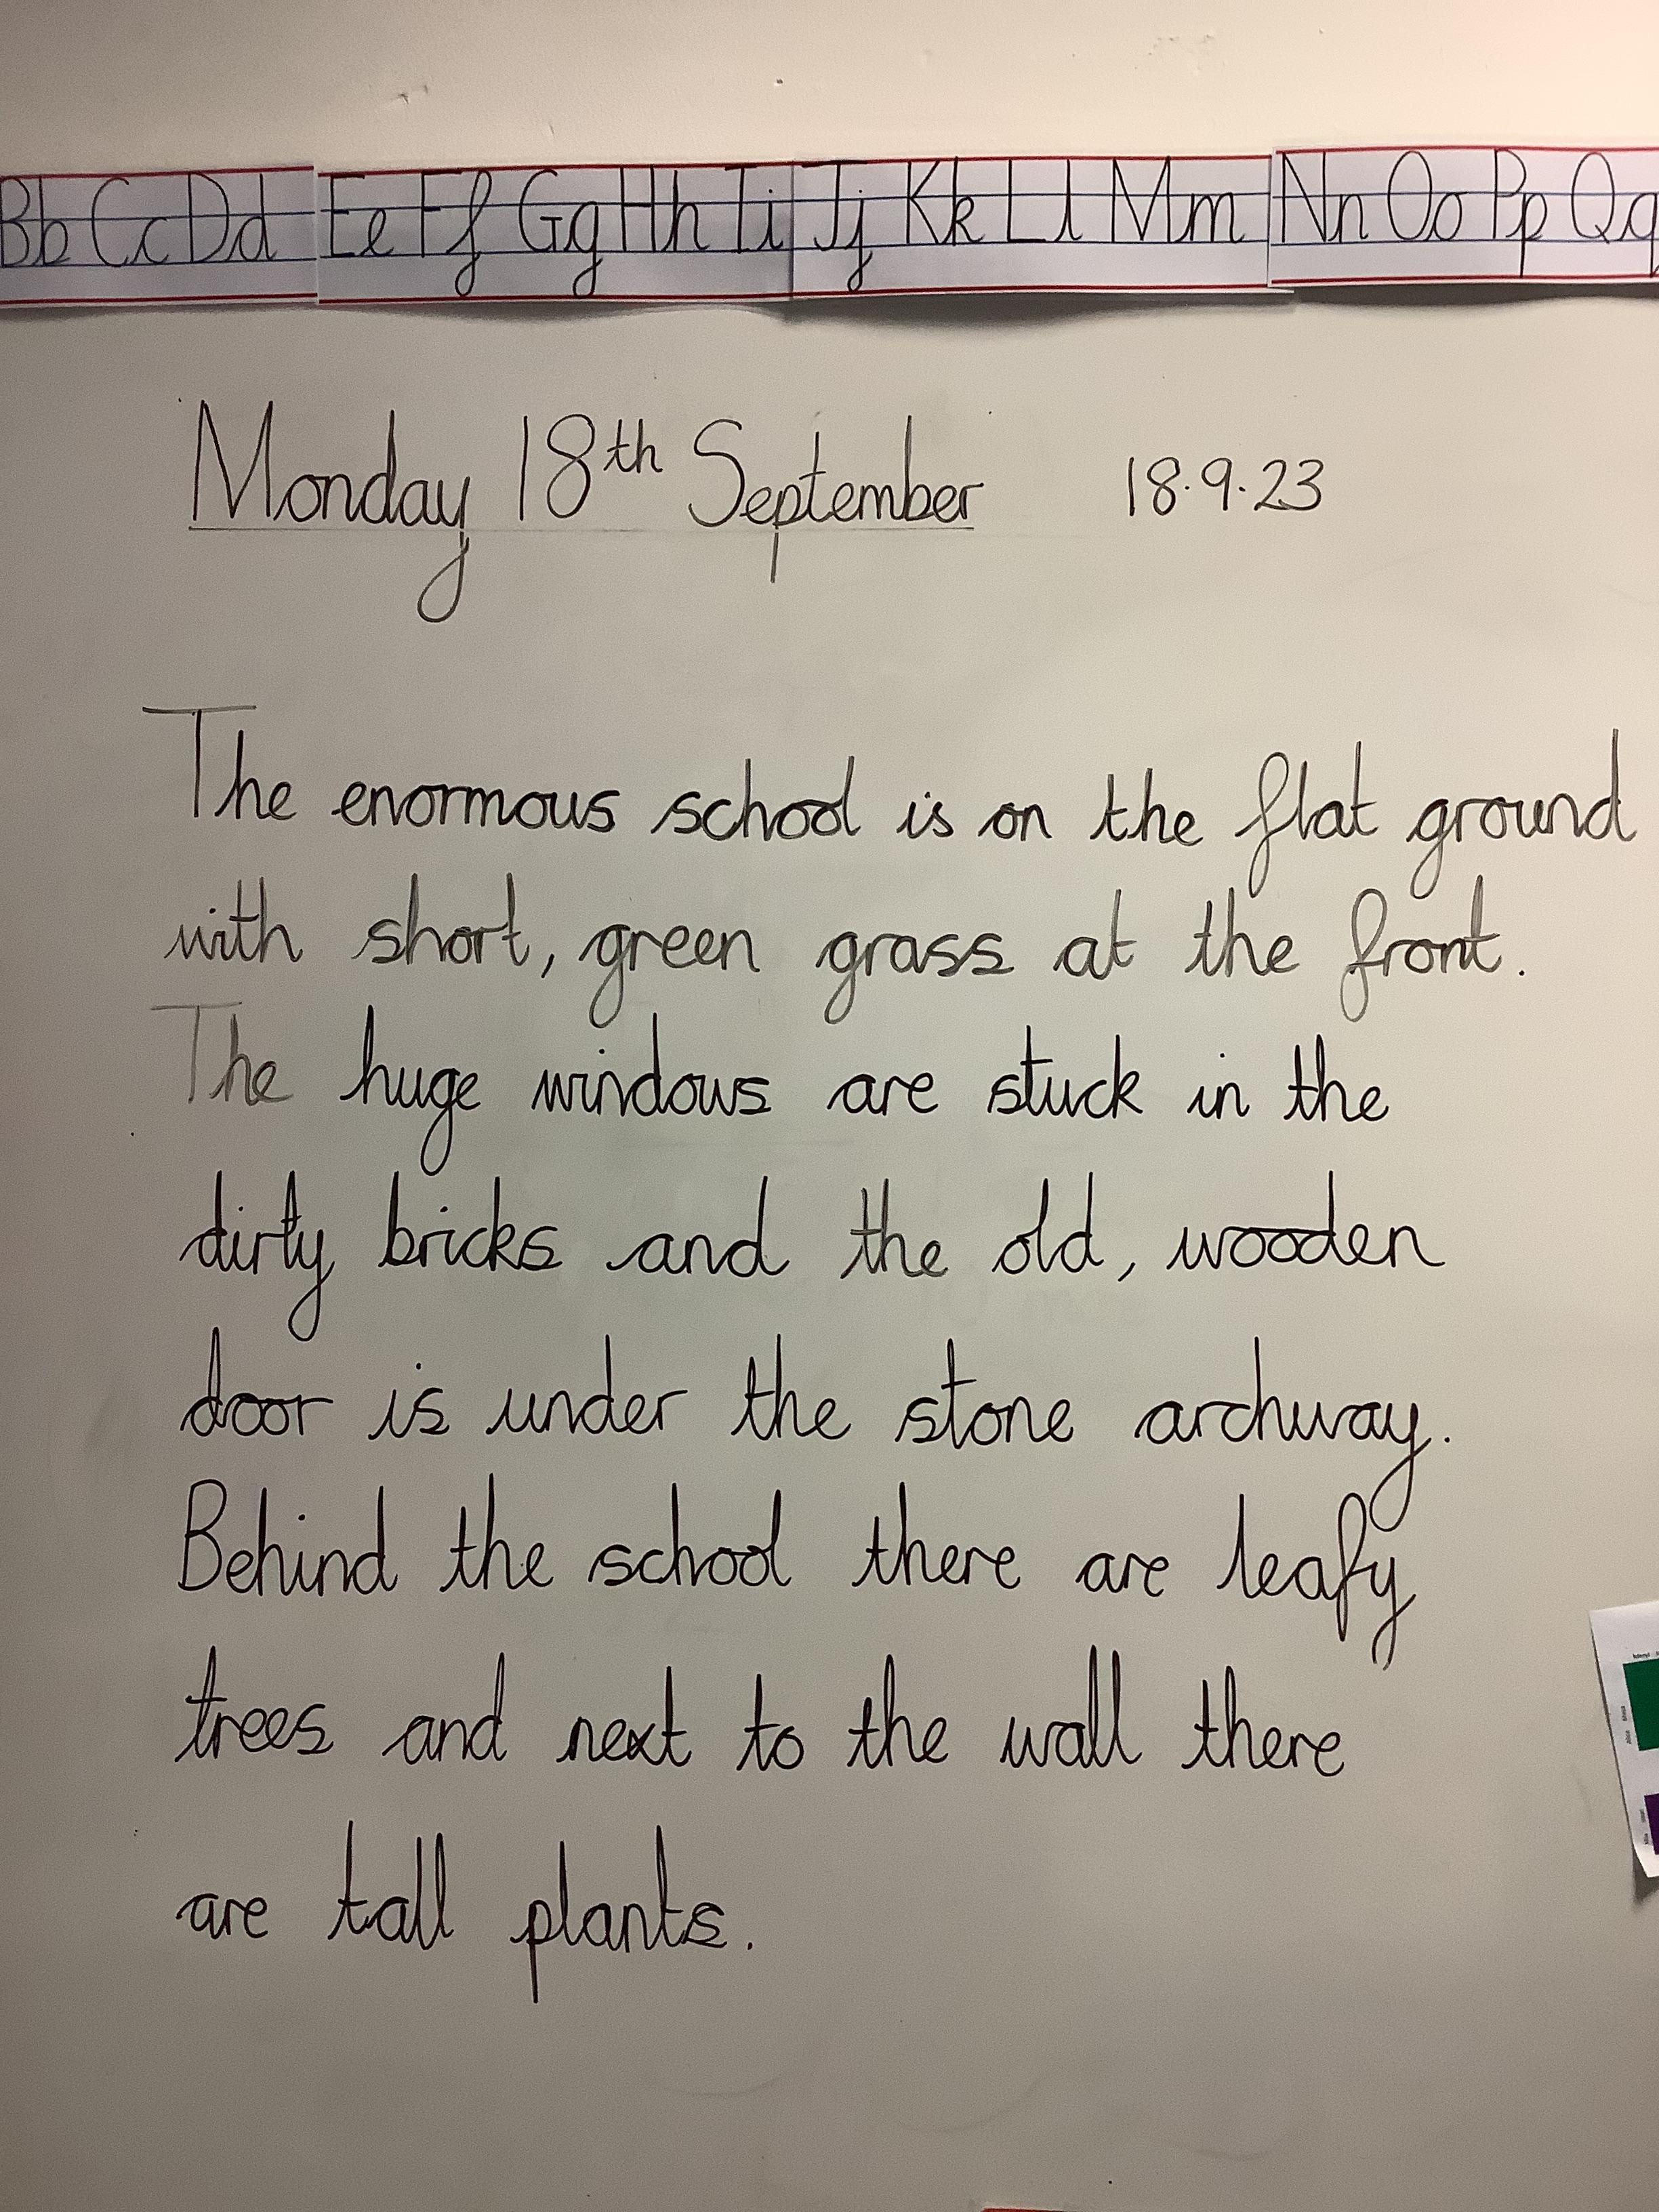 Bb Cc Dd Ee Ff Gg Hh Ii Jj Kk Ll Mm Nn Oo Pp Qq
Monday 18th September 18.9.23
The enormous school is on the flat ground
with short, green grass at the front.
The huge windows are stuck in the
dirty bricks and the old, wooden
door is under the stone archway.
Behind the school there are leafy
trees and next to the wall there
are tall plants.